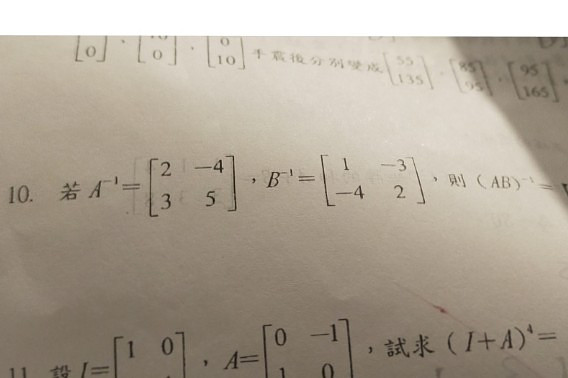 [0] 、 [10 0] 、 [0 10] 乘後分別變成 [55 135] 、 [85 95] 、 [95 165]
10. 若 A⁻¹= [2 −4; 3 5] ，B⁻¹= [1 −3; −4 2] ，則 (AB)⁻¹ =
11. 設 I= [1 0 ，A= [0 −1; 1 0 ，試求 (I+A)⁴=